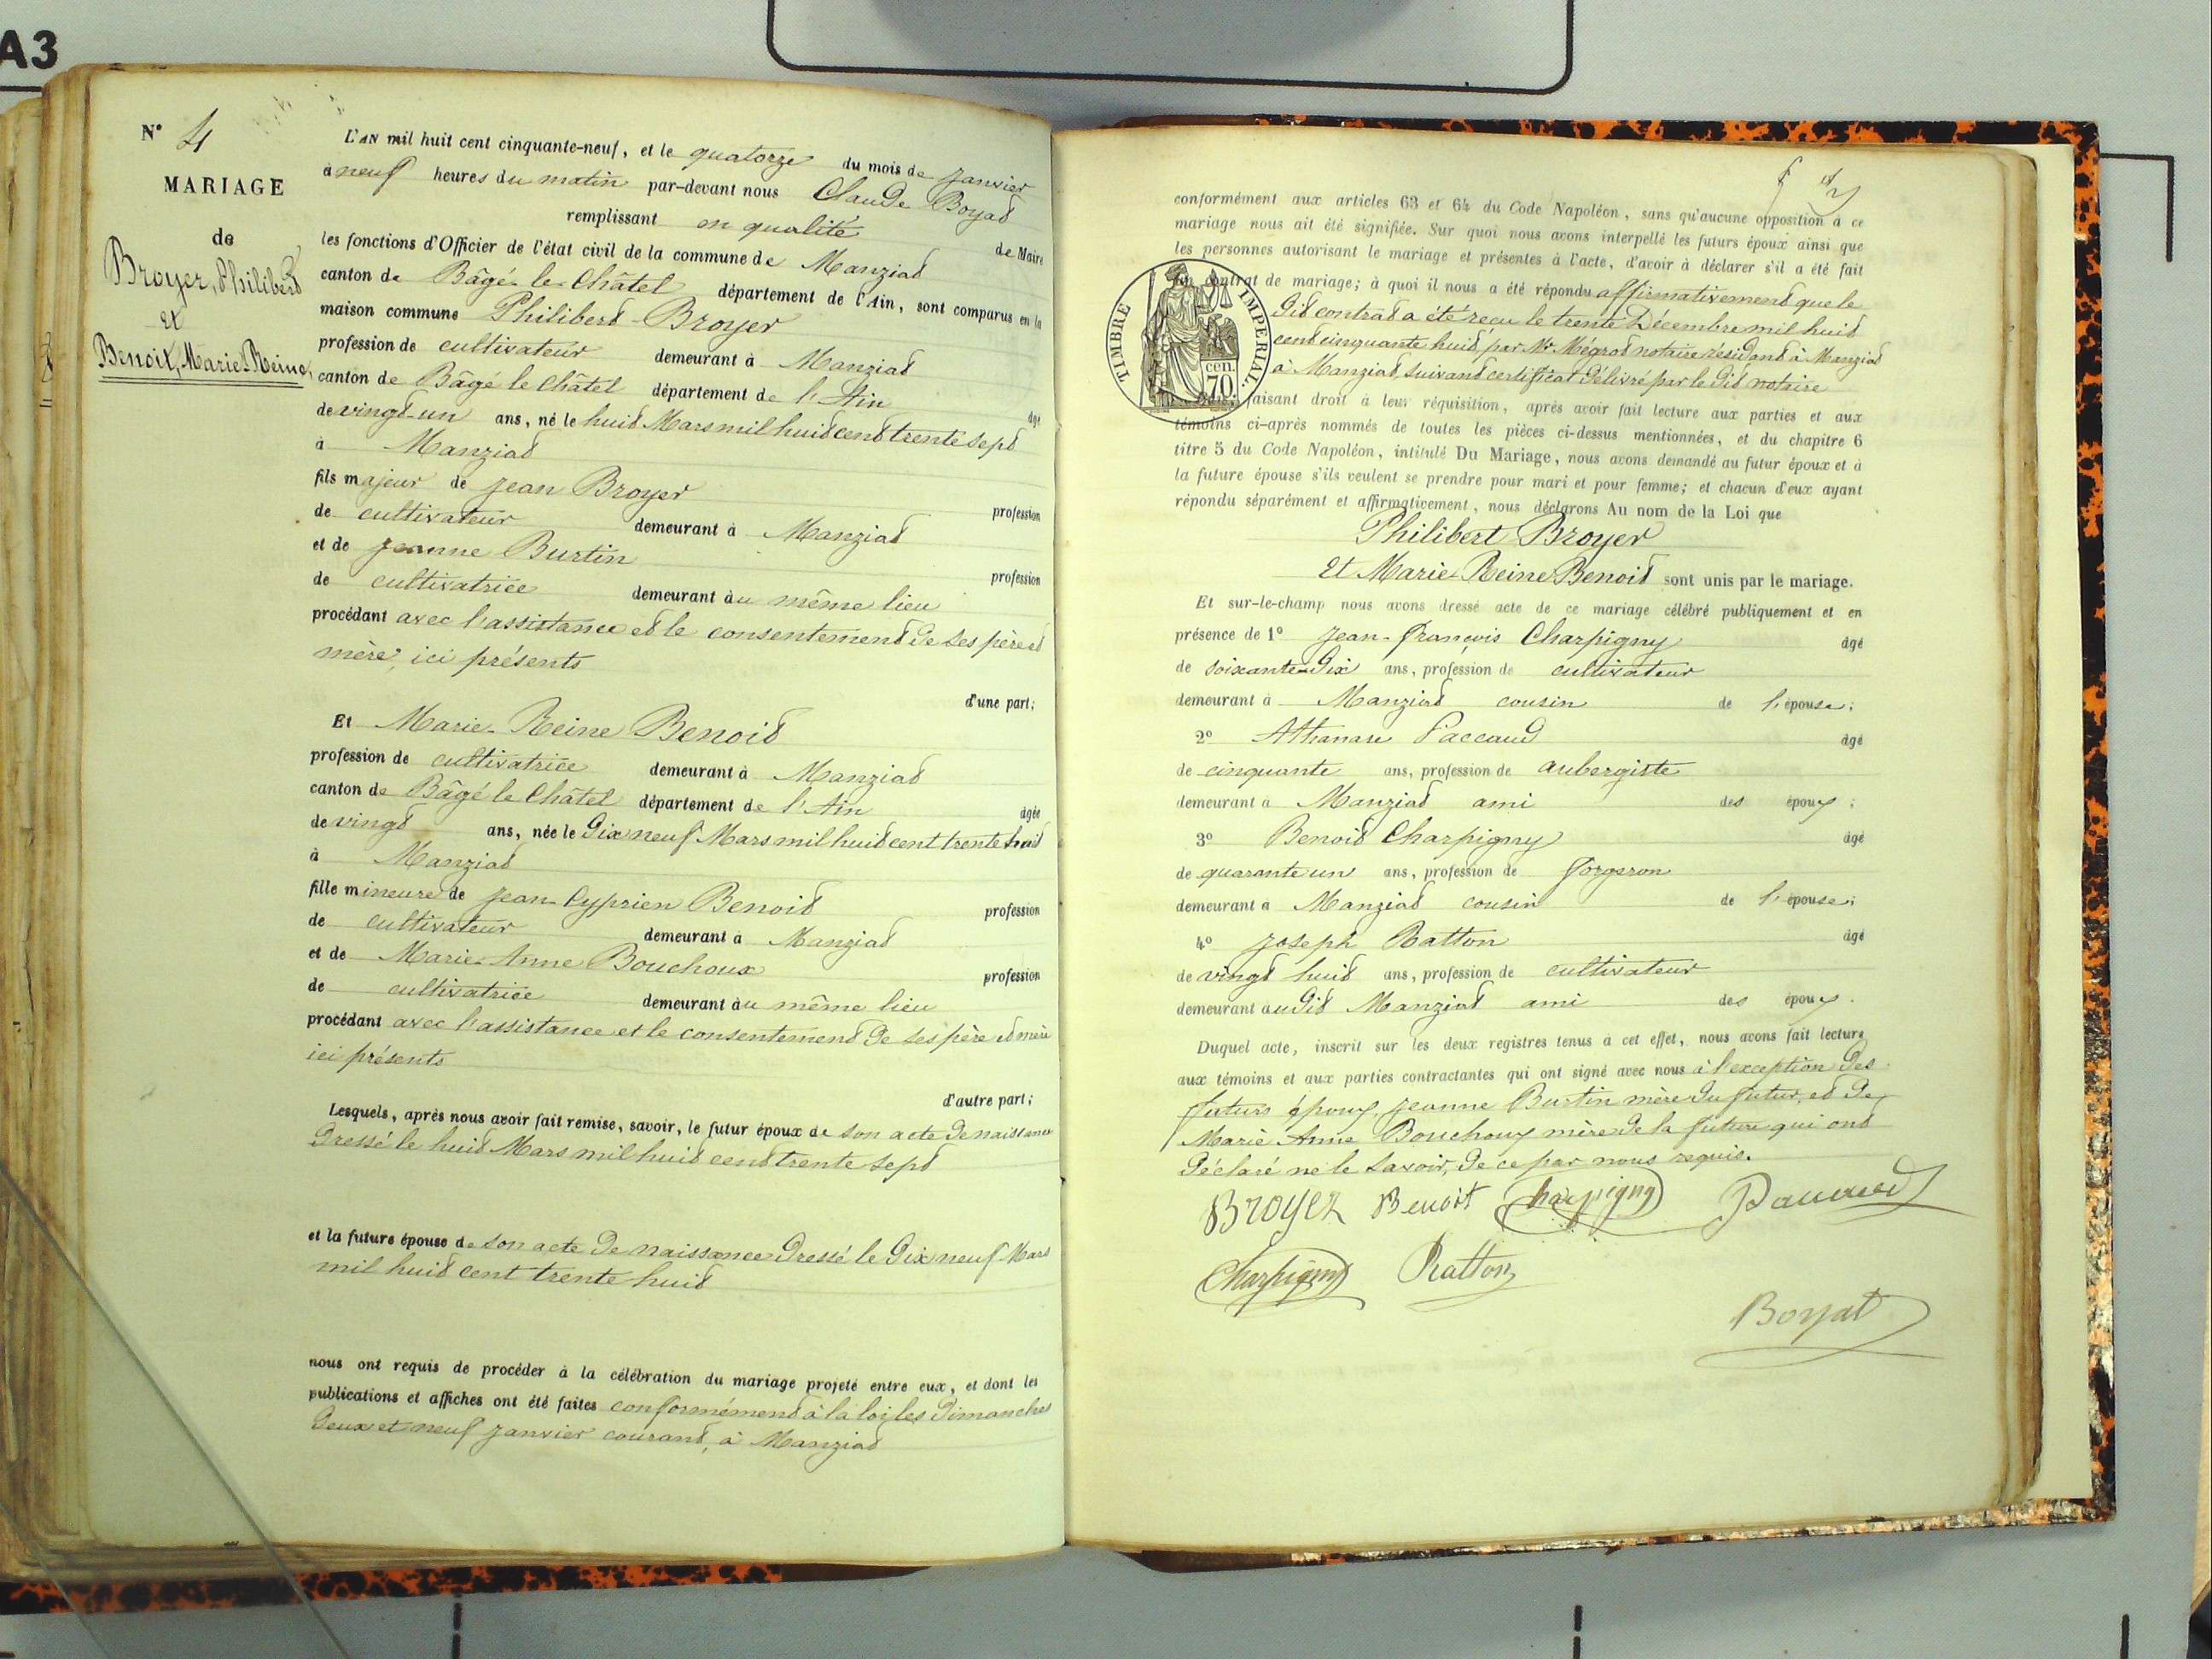 A3
N° 4
MARIAGE
de
Broyer, Philibert
et
Benoit, Marie-Reine
L'AN mil huit cent cinquante-neuf, et le quatorze du mois de janvier
à neuf heures du matin par-devant nous Claude Boyat
remplissant en qualité de Maire
les fonctions d'Officier de l'état civil de la commune de Manziat
canton de Bâgé-le-Châtel département de l'Ain, sont comparus en la
maison commune Philibert Broyer
profession de cultivateur demeurant à Manziat
canton de Bâgé le Châtel département de l'Ain âgé
de vingt-un ans, né le huit Mars mil huit cent trente sept
à Manziat
fils majeur de Jean Broyer profession
de cultivateur demeurant à Manziat
et de Jeanne Burtin profession
de cultivatrice demeurant au même lieu
procédant avec l'assistance et le consentement de ses père et
mère, ici présents
d'une part;
Et Marie-Reine Benoit
profession de cultivatrice demeurant à Manziat
canton de Bâgé le Châtel département de l'Ain âgée
de vingt ans, née le dix neuf Mars mil huit cent trente huit
à Manziat
fille mineure de Jean-Cyprien Benoit profession
de cultivateur demeurant à Manziat
et de Marie-Anne Bouchoux profession
de cultivatrice demeurant au même lieu
procédant avec l'assistance et le consentement de ses père et mère
ici présents
d'autre part;
Lesquels, après nous avoir fait remise, savoir, le futur époux de son acte de naissance
dressé le huit Mars mil huit cent trente sept
et la future épouse de son acte de naissance dressé le dix neuf Mars
mil huit cent trente huit
nous ont requis de procéder à la célébration du mariage projeté entre eux, et dont les
publications et affiches ont été faites conformément à la loi, les dimanches
deux et neuf janvier courant, à Manziat
conformément aux articles 63 et 64 du Code Napoléon, sans qu'aucune opposition à ce
mariage nous ait été signifiée. Sur quoi nous avons interpellé les futurs époux ainsi que
les personnes autorisant le mariage et présentes à l'acte, d'avoir à déclarer s'il a été fait
un contrat de mariage; à quoi il nous a été répondu affirmativement que le
dit contrat a été reçu le trente Décembre mil huit
cent cinquante huit, par Me Mégrod notaire résidant à Manziat
à Manziat, suivant certificat délivré par le dit notaire
TIMBRE IMPERIAL.
cen.
70.
faisant droit à leur réquisition, après avoir fait lecture aux parties et aux
témoins ci-après nommés de toutes les pièces ci-dessus mentionnées, et du chapitre 6
titre 5 du Code Napoléon, intitulé Du Mariage, nous avons demandé au futur époux et à
la future épouse s'ils veulent se prendre pour mari et pour femme; et chacun d'eux ayant
répondu séparément et affirmativement, nous déclarons Au nom de la Loi que
Philibert Broyer
Et Marie-Reine Benoit sont unis par le mariage.
Et sur-le-champ nous avons dressé acte de ce mariage célébré publiquement et en
présence de 1° Jean-François Charpigny âgé
de soixante-dix ans, profession de cultivateur
demeurant à Manziat cousin de l'épouse;
2° Athanase Paccaud âgé
de cinquante ans, profession de aubergiste
demeurant à Manziat ami des époux;
3° Benoit Charpigny âgé
de quarante un ans, profession de forgeron
demeurant à Manziat cousin de l'épouse;
4° Joseph Ratton âgé
de vingt huit ans, profession de cultivateur
demeurant au dit Manziat ami des époux.
Duquel acte, inscrit sur les deux registres tenus à cet effet, nous avons fait lecture
aux témoins et aux parties contractantes qui ont signé avec nous à l'exception des
futurs époux, Jeanne Burtin mère du futur, et de
Marie Anne Bouchoux mère de la future qui ont
déclaré ne le savoir, de ce par nous requis.
Broyer Benoit Charpigny Paccaud
Charpigny Ratton
Boyat